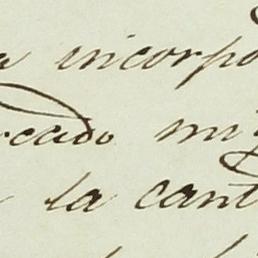 a incorpo
rcado mi
la cant